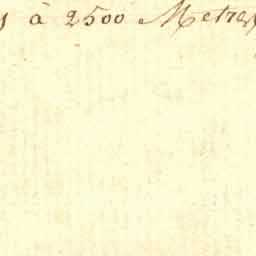 à 2500 Metres